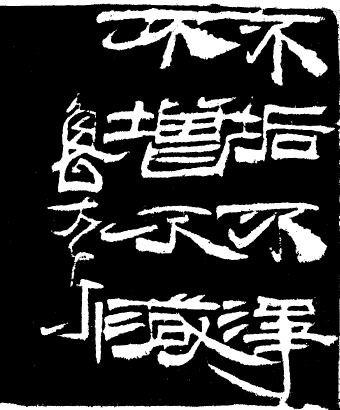 不垢不淨
不增不減